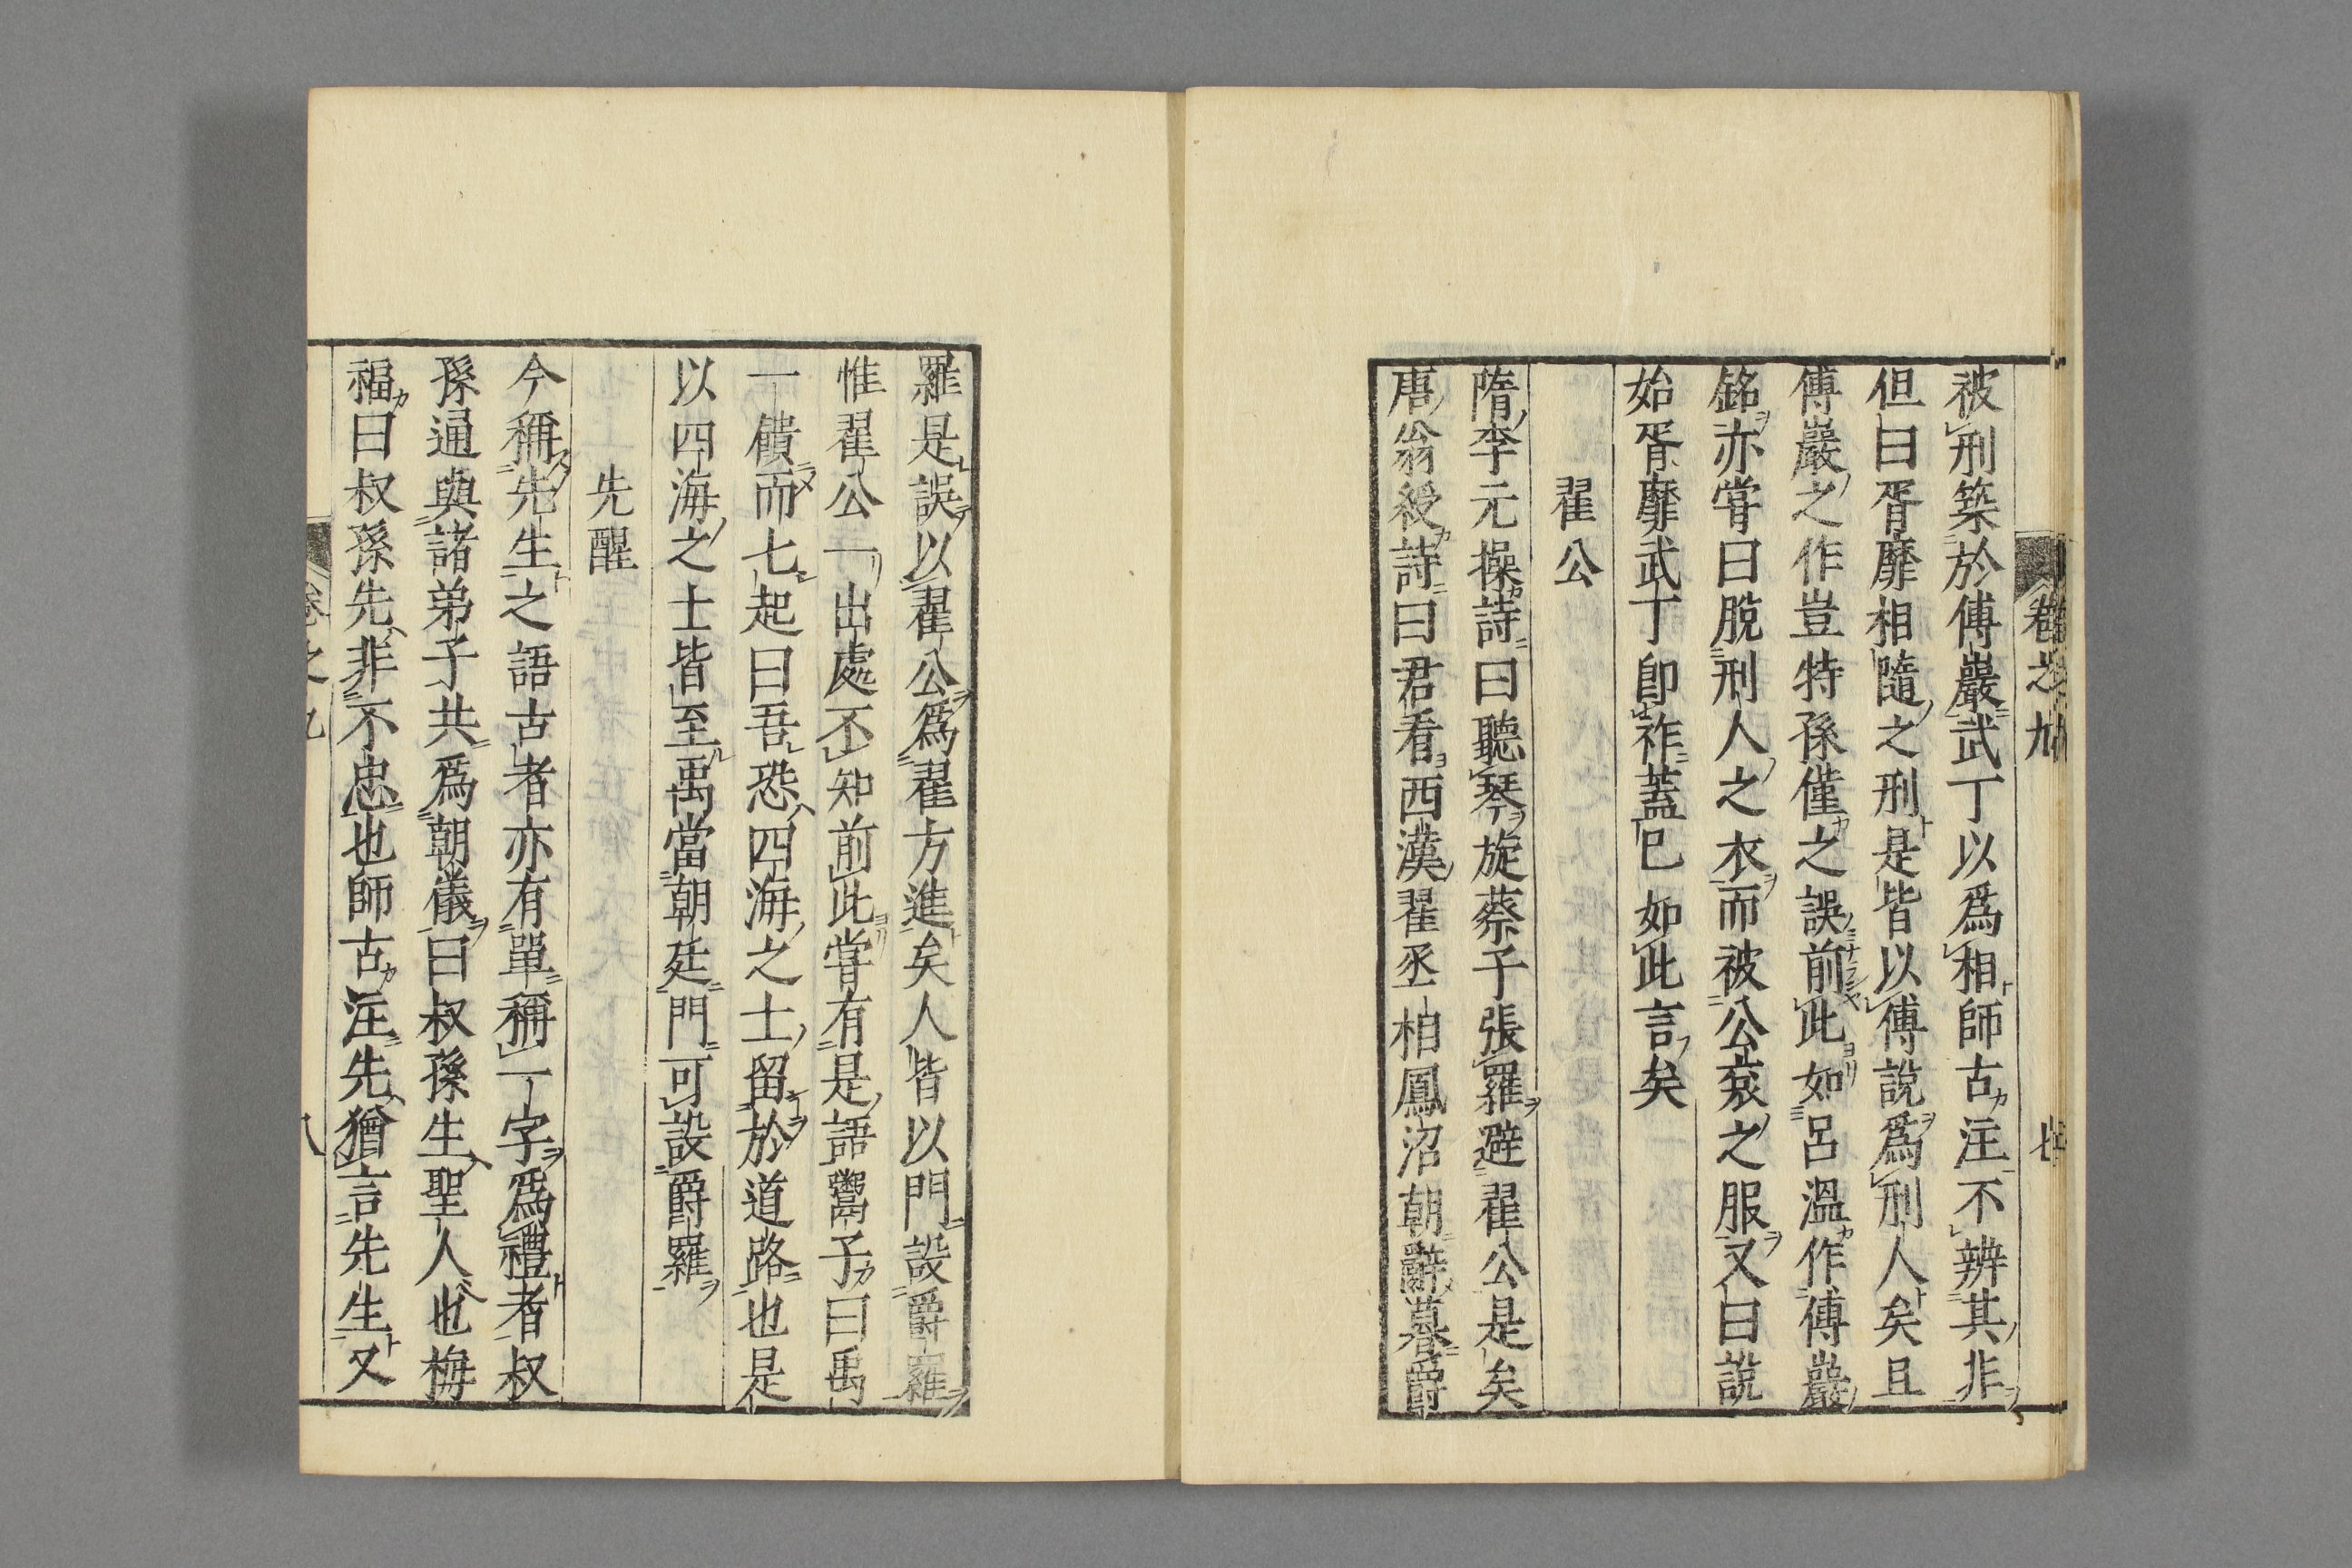 卷之九
七
被刑築於傅巖武丁以爲相師古注不辨其非
但曰胥靡相隨之刑是皆以傅說爲刑人矣且
傅巖之作豈特孫僅之誤前此如呂溫作傅巖
銘亦嘗曰脫刑人之衣而被公袞之服又曰說
始胥靡武丁卽祚蓋已如此言矣
翟公
隋李元操詩曰聽琴旋蔡子張羅避翟公是矣
唐翁綬詩曰君看西漢翟丞相鳳沼朝辭暮爵
羅是誤以翟公爲翟方進矣人皆以門設爵羅
惟翟公一出處不知前此嘗有是語鬻子曰禹
一饋而七起曰吾恐四海之士留於道路也是
以四海之士皆至禹當朝廷門可設爵羅
先醒
今稱先生之語古者亦有單稱一字爲禮者叔
孫通與諸弟子共爲朝儀曰叔孫生聖人也梅
福曰叔孫先非不忠也師古注先猶言先生又
卷之九
八